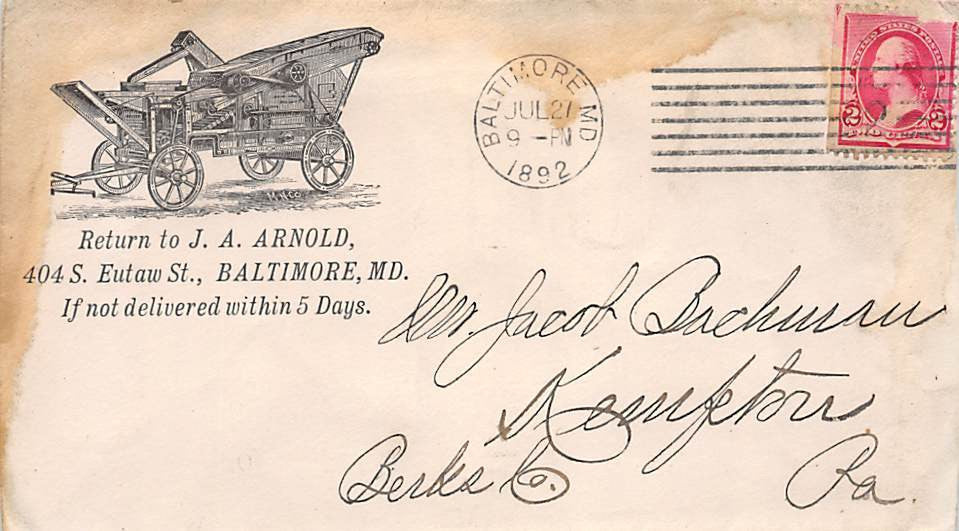 Return to J. A. ARNOLD,
404 S. Eutaw St., BALTIMORE, MD.
If not delivered within 5 Days.
BALTIMORE MD
JUL 27
9 - PM
1892
UNITED STATES POSTAGE
2 2
TWO CENTS
Mr. Jacob Bachman
Kempton
Berks Co. Pa.